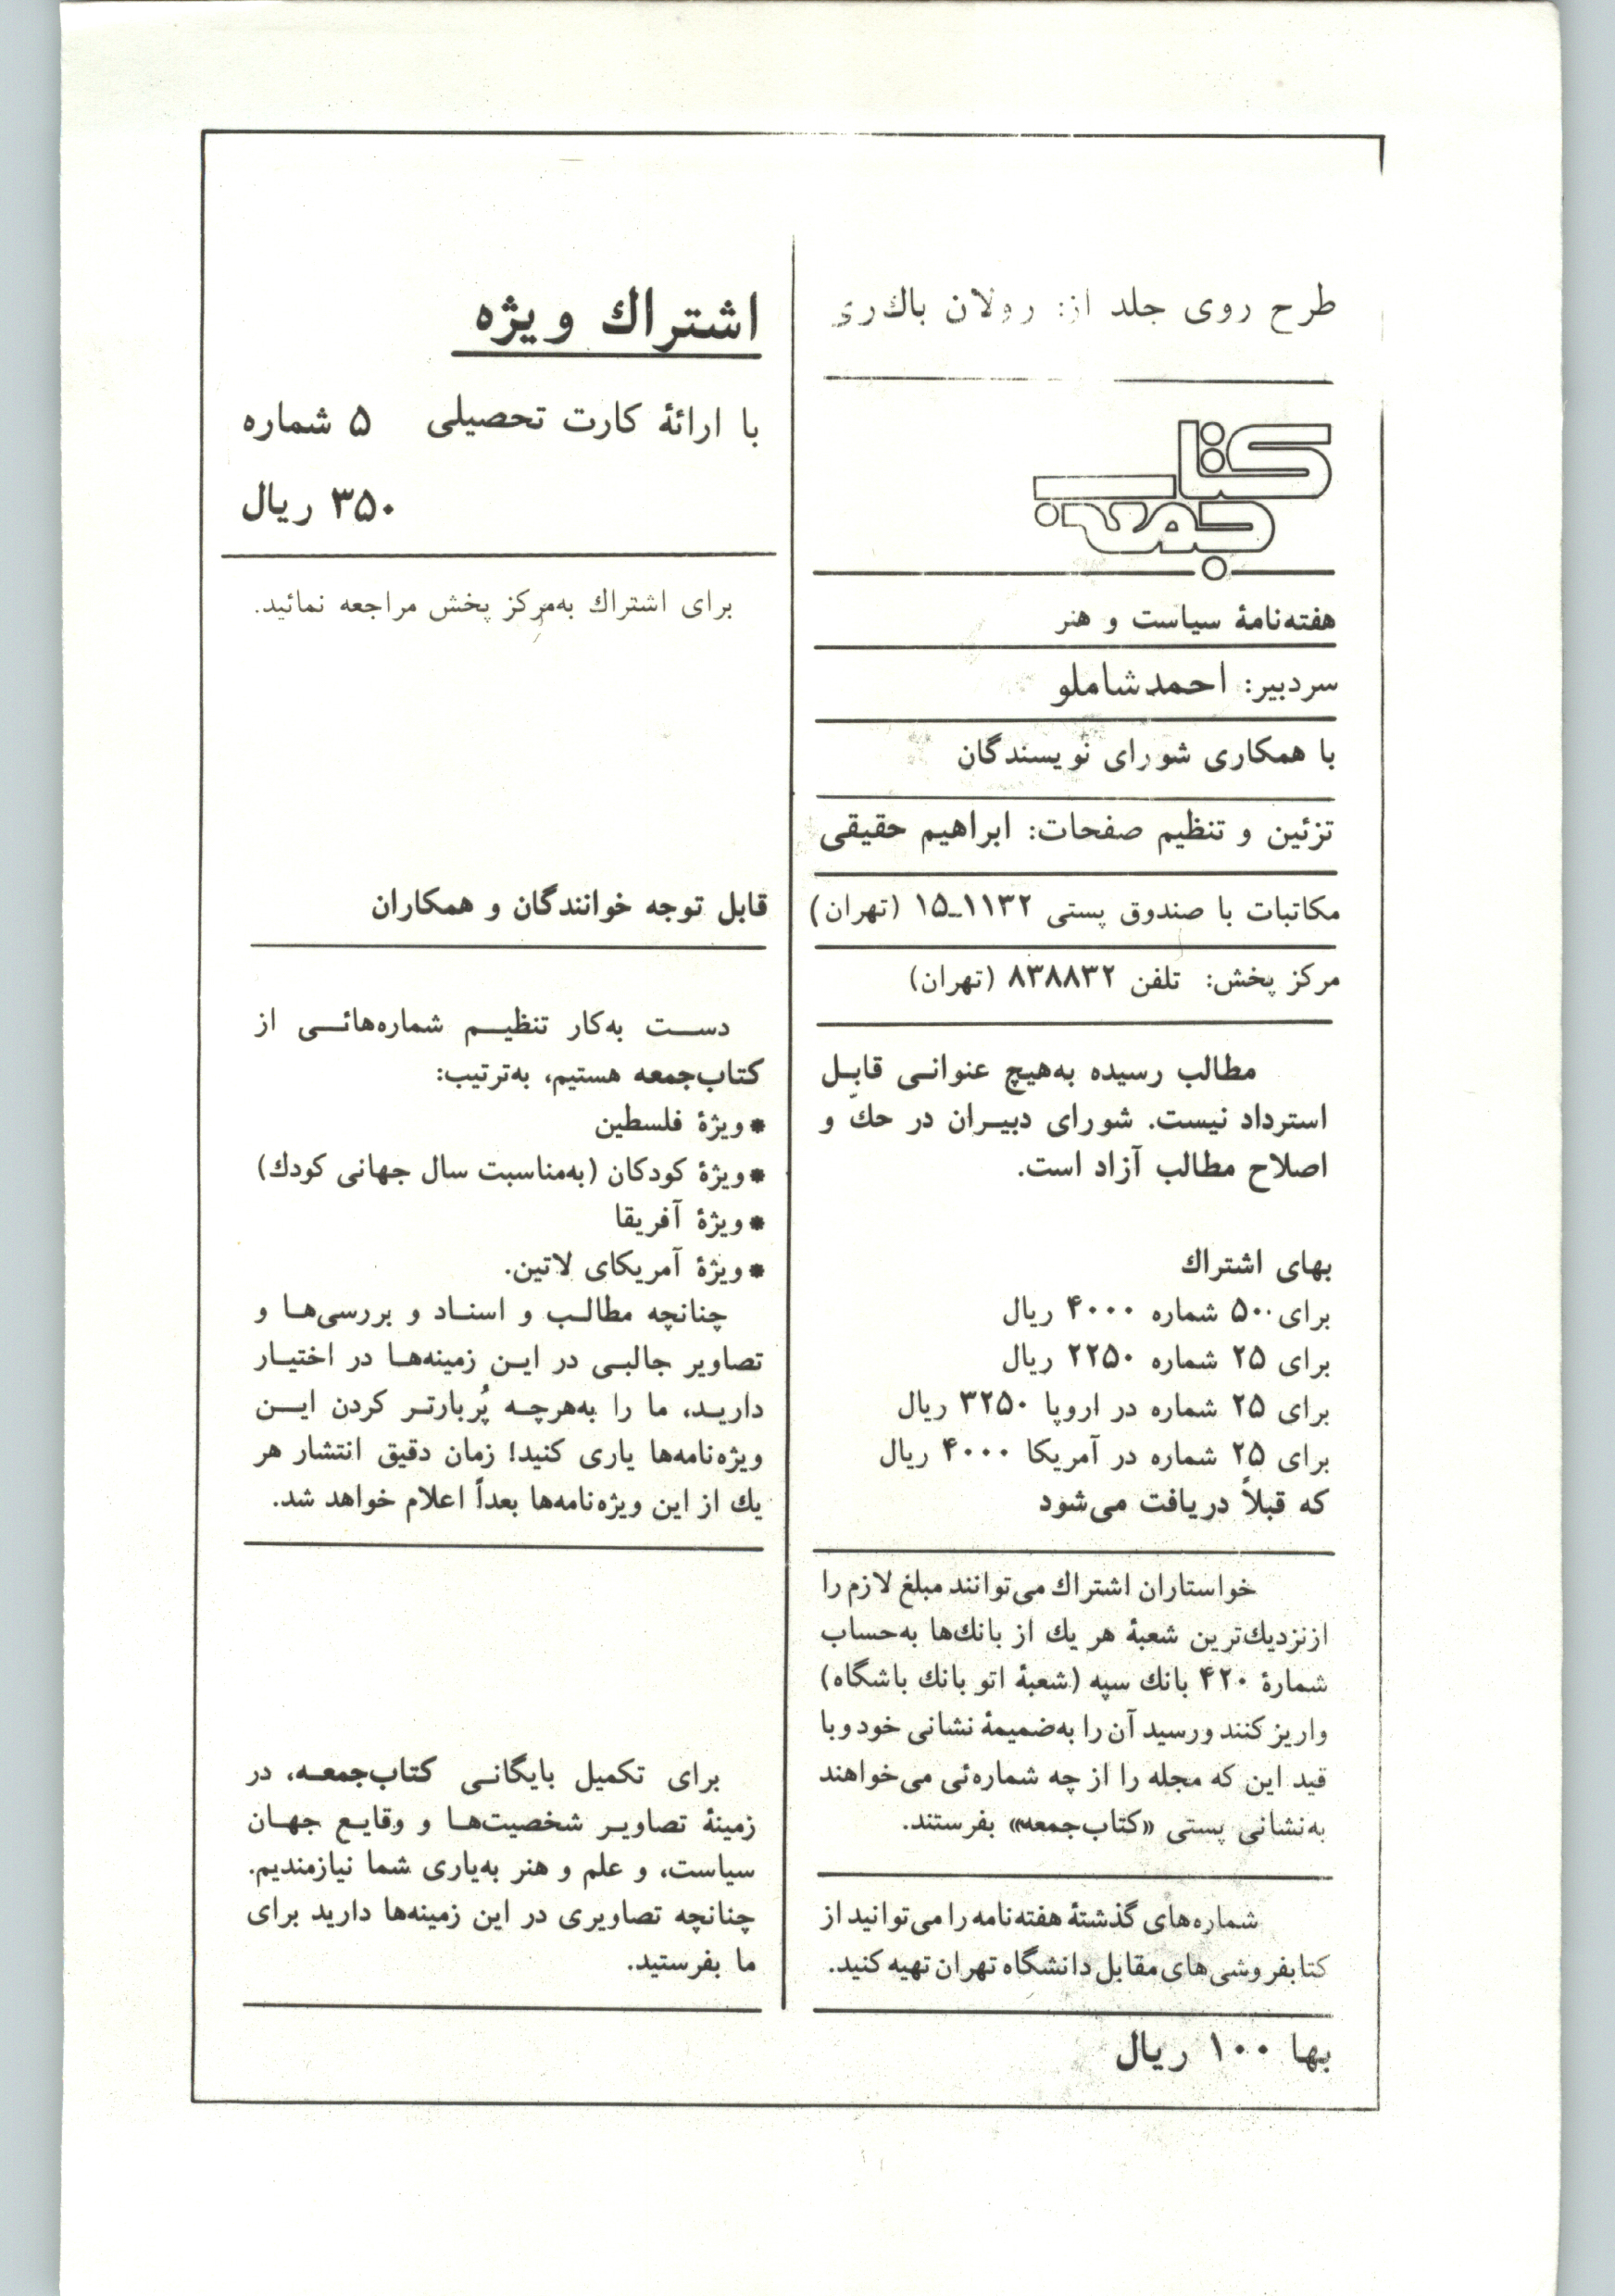 طرح روی جلد از: رولان باك‌ری
کتاب
جمعه
هفته‌نامهٔ سیاست و هنر
سردبیر: احمد شاملو
با همکاری شورای نویسندگان
تزئین و تنظیم صفحات: ابراهیم حقیقی
مکاتبات با صندوق پستی ۱۱۳۲ـ۱۵ (تهران)
مرکز پخش: تلفن ۸۳۸۸۳۲ (تهران)
مطالب رسیده به‌هیچ عنوانی قابل
استرداد نیست. شورای دبیران در حكّ و
اصلاح مطالب آزاد است.
بهای اشتراك
برای ۵۰ شماره ۴۰۰۰ ریال
برای ۲۵ شماره ۲۲۵۰ ریال
برای ۲۵ شماره در اروپا ۳۲۵۰ ریال
برای ۲۵ شماره در آمریکا ۴۰۰۰ ریال
که قبلاً دریافت می‌شود
خواستاران اشتراك می‌توانند مبلغ لازم را
ازنزدیك‌ترین شعبهٔ هر یك از بانك‌ها به‌حساب
شمارهٔ ۴۲۰ بانك سپه (شعبهٔ اتو بانك باشگاه)
واریز کنند ورسید آن را به‌ضمیمهٔ نشانی خود و با
قید این که مجله را از چه شماره‌ئی می‌خواهند
به‌نشانی پستی «کتاب‌جمعه» بفرستند.
شماره‌های گذشتهٔ هفته‌نامه را می‌توانید از
کتابفروشی‌های مقابل دانشگاه تهران تهیه کنید.
بها ۱۰۰ ریال
اشتراك ویژه
با ارائهٔ کارت تحصیلی ۵ شماره
۳۵۰ ریال
برای اشتراك به‌مرکز پخش مراجعه نمائید.
قابل توجه خوانندگان و همکاران
دست به‌کار تنظیم شماره‌هائی از
کتاب‌جمعه هستیم، به‌ترتیب:
* ویژهٔ فلسطین
* ویژهٔ کودکان (به‌مناسبت سال جهانی کودك)
* ویژهٔ آفریقا
* ویژهٔ آمریکای لاتین.
چنانچه مطالب و اسناد و بررسی‌ها و
تصاویر جالبی در این زمینه‌ها در اختیار
دارید، ما را به‌هرچه پُربارتر کردن این
ویژه‌نامه‌ها یاری کنید! زمان دقیق انتشار هر
یك از این ویژه‌نامه‌ها بعداً اعلام خواهد شد.
برای تکمیل بایگانی کتاب‌جمعه، در
زمینهٔ تصاویر شخصیت‌ها و وقایع جهان
سیاست، و علم و هنر به‌یاری شما نیازمندیم.
چنانچه تصاویری در این زمینه‌ها دارید برای
ما بفرستید.